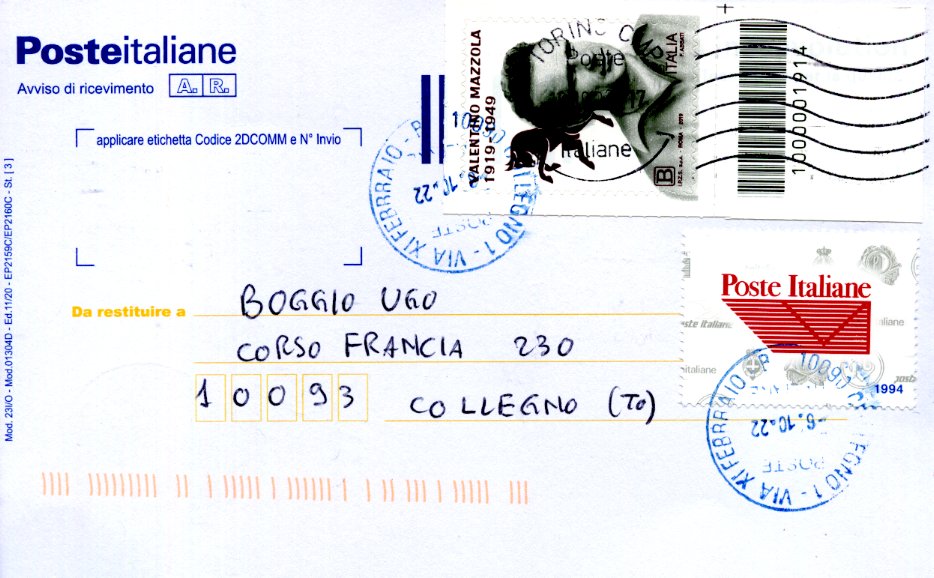 Posteitaliane
Avviso di ricevimento A. R.
applicare etichetta Codice 2DCOMM e N° Invio
Mod. 23I/O - Mod.01304D - Ed.11/20 - EP2159C/EP2160C - St. [3]
VALENTINO MAZZOLA
1919-1949
ITALIA
B
I.P.Z.S. S.p.A. - ROMA - 2019
TORINO CMP
Poste
Italiane
1000001914
10090 COLLEGNO 1 - VIA XI FEBBRAIO
6.10.22
POSTE
Poste Italiane
1994
10090 COLLEGNO 1 - VIA XI FEBBRAIO
6.10.22
POSTE
Da restituire a BOGGIO UGO
CORSO FRANCIA 230
10093 COLLEGNO (TO)